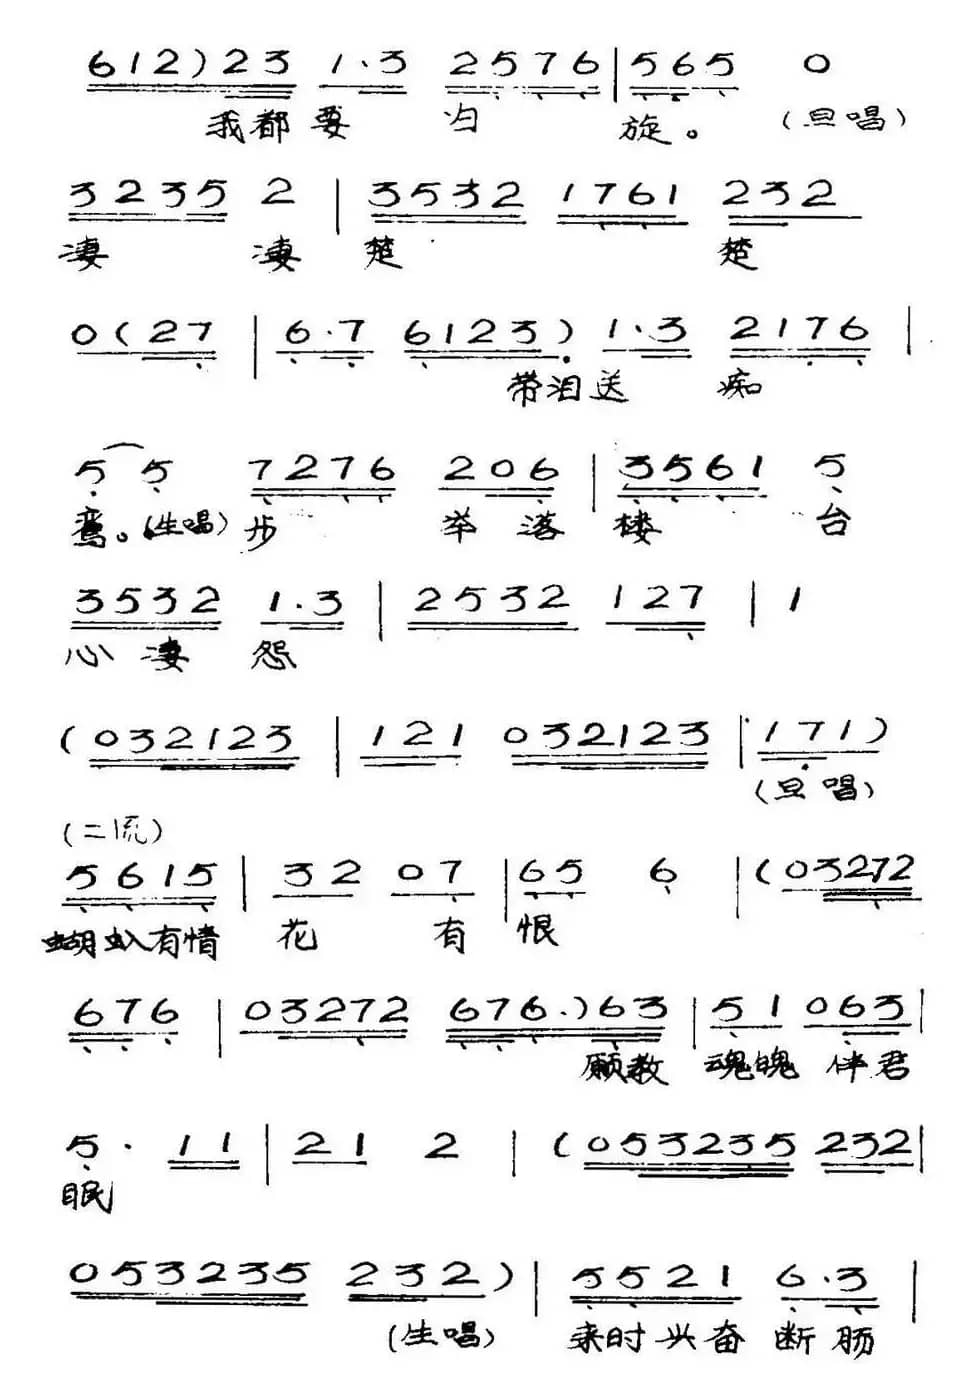 612) 23 1·3 2576 | 565 0
我都要归旋。(旦唱)
3235 2 | 3532 1761 232
凄凄楚楚
0(27 | 6·7 6123) 1·3 2176 |
带泪送痴
5 5 7276 206 | 3561 5
鸾。(生唱)步举落楼台
3532 1·3 | 2532 127 | 1
心凄怨
(032123 | 121 032123 | 171)
(旦唱)
(二流)
5615 | 32 07 | 65 6 | (03272
蝴㕥有情花有恨
676 | 03272 676·) 63 | 51 063 |
愿教魂魄伴君
5· 11 | 21 2 | (053235 232 |
眠
053235 232) | 5521 6·3 |
(生唱) 来时兴奋断肠